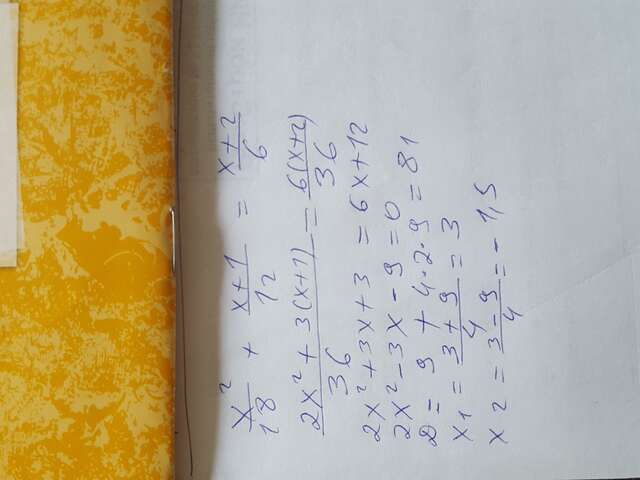 x²/18 + x+1/12 = x+2/6
2x²+3(x+1)/36 = 6(x+2)/36
2x²+3x+3 = 6x+12
2x²-3x-9=0
D= 9 + 4·2·9 = 81
x1 = 3+9/4 = 3
x2 = 3-9/4 = -1,5